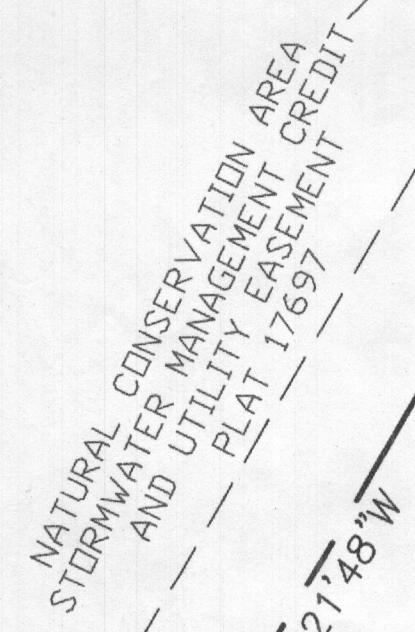 NATURAL CONSERVATION AREA
STORMWATER MANAGEMENT CREDIT
AND UTILITY EASEMENT
PLAT 17697
21'48"W